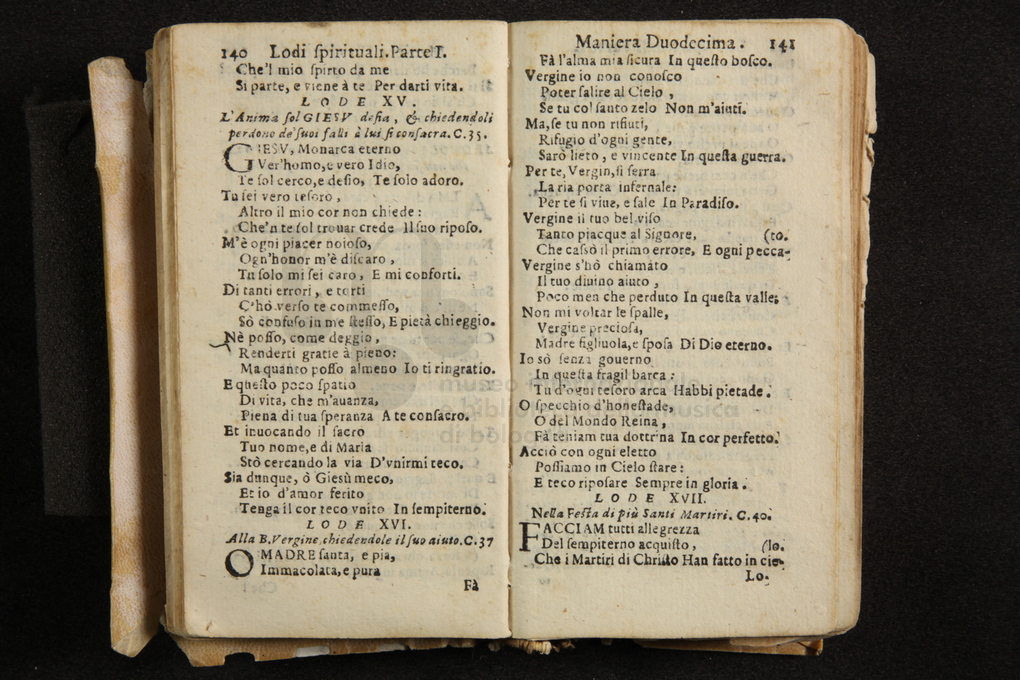 140 Lodi ſpirituali.Parte I.
Che'l mio ſpirto da me
Si parte, e viene à te Per darti vita.
LODE XV.
L'Anima ſol GIESV deſia, & chiedendoli
perdono de' ſuoi falli à lui ſi conſacra. C.35.
GIESV, Monarca eterno
Ver'homo,e vero Idio,
Te ſol cerco,e deſio, Te ſolo adoro.
Tu ſei vero teſoro,
Altro il mio cor non chiede:
Che'n te ſol trouar crede Il ſuo ripoſo.
M'è ogni piacer noioſo,
Ogn'honor m'è diſcaro,
Tu ſolo mi ſei caro, E mi conforti.
Di tanti errori, e torti
C'hò verſo te commeſſo,
Sò confuſo in me ſteſſo, E pietà chieggio.
Nè poſſo, come deggio,
Renderti gratie à pieno:
Ma quanto poſſo almeno Io ti ringratio.
E queſto poco ſpatio
Di vita, che m'auanza,
Piena di tua ſperanza A te conſacro.
Et inuocando il ſacro
Tuo nome,e di Maria
Stò cercando la via D'vnirmi teco.
Sia dunque, ò Gieſù meco,
Et io d'amor ferito
Tenga il cor teco vnito In ſempiterno.
LODE XVI.
Alla B.Vergine,chiedendole il ſuo aiuto.C.37
O MADRE ſanta, e pia,
Immacolata,e pura
Fà
Maniera Duodecima. 141
Fà l'alma mia ſicura In queſto boſco.
Vergine io non conoſco
Poter ſalire al Cielo,
Se tu col ſanto zelo Non m'aiuti.
Ma,ſe tu non rifiuti,
Rifugio d'ogni gente,
Sarò lieto, e vincente In queſta guerra.
Per te, Vergin,ſi ſerra
La ria porta infernale:
Per te ſi viue, e ſale In Paradiſo.
Vergine il tuo bel viſo
Tanto piacque al Signore, (to.
Che caſsò il primo errore, E ogni pecca-
Vergine s'hò chiamato
Il tuo diuino aiuto,
Poco men che perduto In queſta valle;
Non mi voltar le ſpalle,
Vergine precioſa,
Madre figliuola,e ſpoſa Di Dio eterno.
Io sò ſenza gouerno
In queſta fragil barca:
Tu d'ogni teſoro arca Habbi pietade.
O ſpecchio d'honeſtade,
O del Mondo Reina,
Fà teniam tua dottrina In cor perfetto.
Acciò con ogni eletto
Poſſiamo in Cielo ſtare:
E teco ripoſare Sempre in gloria.
LODE XVII.
Nella Feſta di più Santi Martiri. C.40.
FACCIAM tutti allegrezza
Del ſempiterno acquiſto, (lo.
Che i Martiri di Chriſto Han fatto in cie-
Lo.
museo
biblioteca musica
di bologna